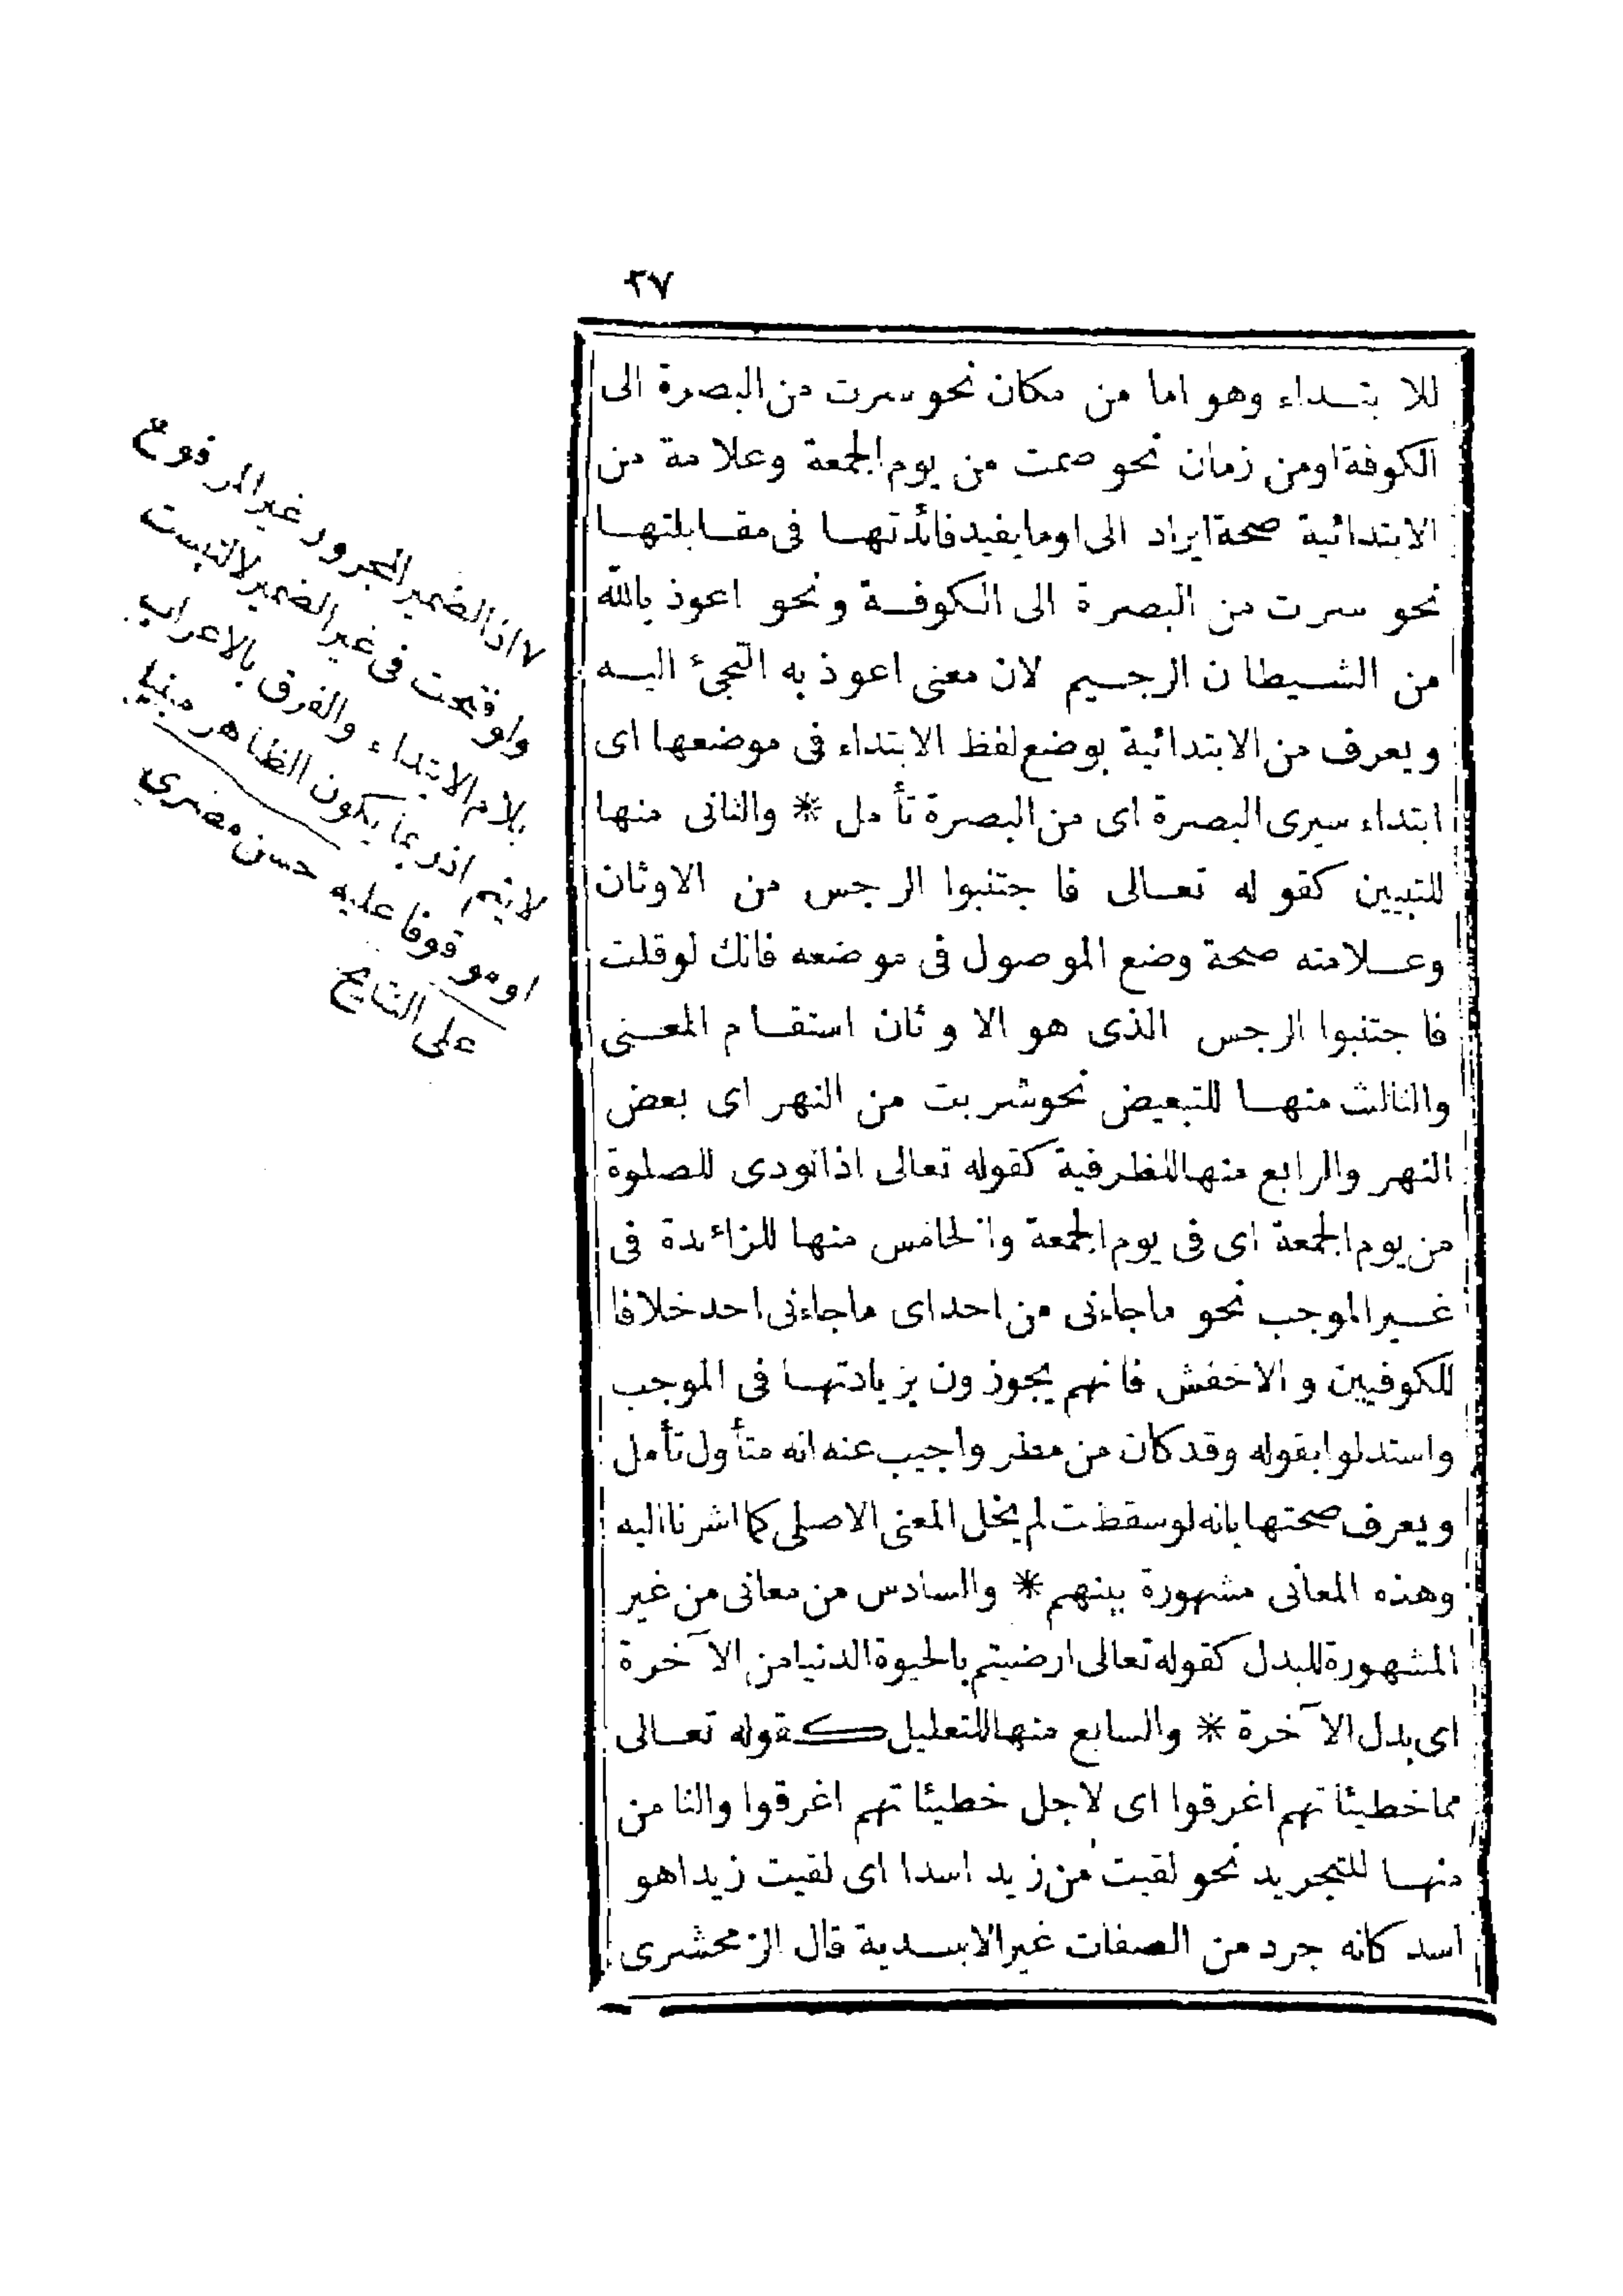 ٢٧
للا بتـداء وهو اما من مكان نحو سرت من البصرة الى
الكوفة اومن زمان نحو صمت من يوم الجمعة وعلامة من
الابتدائية صحة ايراد الى او ما يفيد فائدتهـا فى مقـابلتهـا
نحو سرت من البصرة الى الكوفـة ونحو اعوذ بالله
من الشـيطان الرجـيم لان معنى اعوذ به التجئ اليـه
ويعرف من الابتدائية بوضع لفظ الابتداء فى موضعها اى
ابتداء سيرى البصرة اى من البصرة تأمل * والثانى منها
للتبيين كقوله تعـالى فاجتنبوا الرجس من الاوثان
وعـلامته صحة وضع الموصول فى موضعه فانك لوقلت
فاجتنبوا الرجس الذى هو الاوثان استقـام المعـنى
والثالث منهـا للتبعيض نحو شربت من النهر اى بعض
النهر والرابع منها للظرفية كقوله تعالى اذا نودى للصلوة
من يوم الجمعة اى فى يوم الجمعة والخامس منها للزائدة فى
غـير الموجب نحو ماجاءنى من احد اى ماجاءنى احد خلافا
للكوفيين والاخفش فانهم يجوزون زيادتهـا فى الموجب
واستدلوا بقوله وقد كان من مطر واجيب عنه انه متأول تأمل
ويعرف صحتها بانه لو سقطت لم يخل المعنى الاصلى كما اشرنا اليه
وهذه المعانى مشهورة بينهم * والسادس من معانى من غير
المشهورة للبدل كقوله تعالى ارضيتم بالحيوة الدنيا من الآخرة
اى بدل الآخرة * والسابع منها للتعليل كـقوله تعـالى
مما خطيئاتهم اغرقوا اى لاجل خطيئاتهم اغرقوا والثامن
منهـا للتجريد نحو لقيت من زيد اسدا اى لقيت زيدا هو
اسد كانه جرد من الصفات غير الاسـدية قال الزمحشرى
٧ اذ الضمير المجرور غير المرفوع
ولو فتحت فى غير الضمير لالتبست
بلام الابتداء والفرق بالاعراب
لا يتم اذ ربما يكون الظاهر مبنيا
او موقوفا عليه حسن مصري
على النتايج